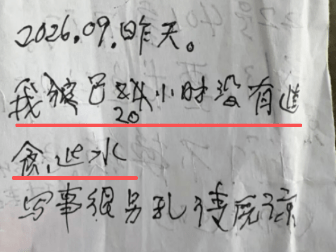 2026.09.昨天。
我被已 20小时没有进
食,进水
写事很另乱请原谅